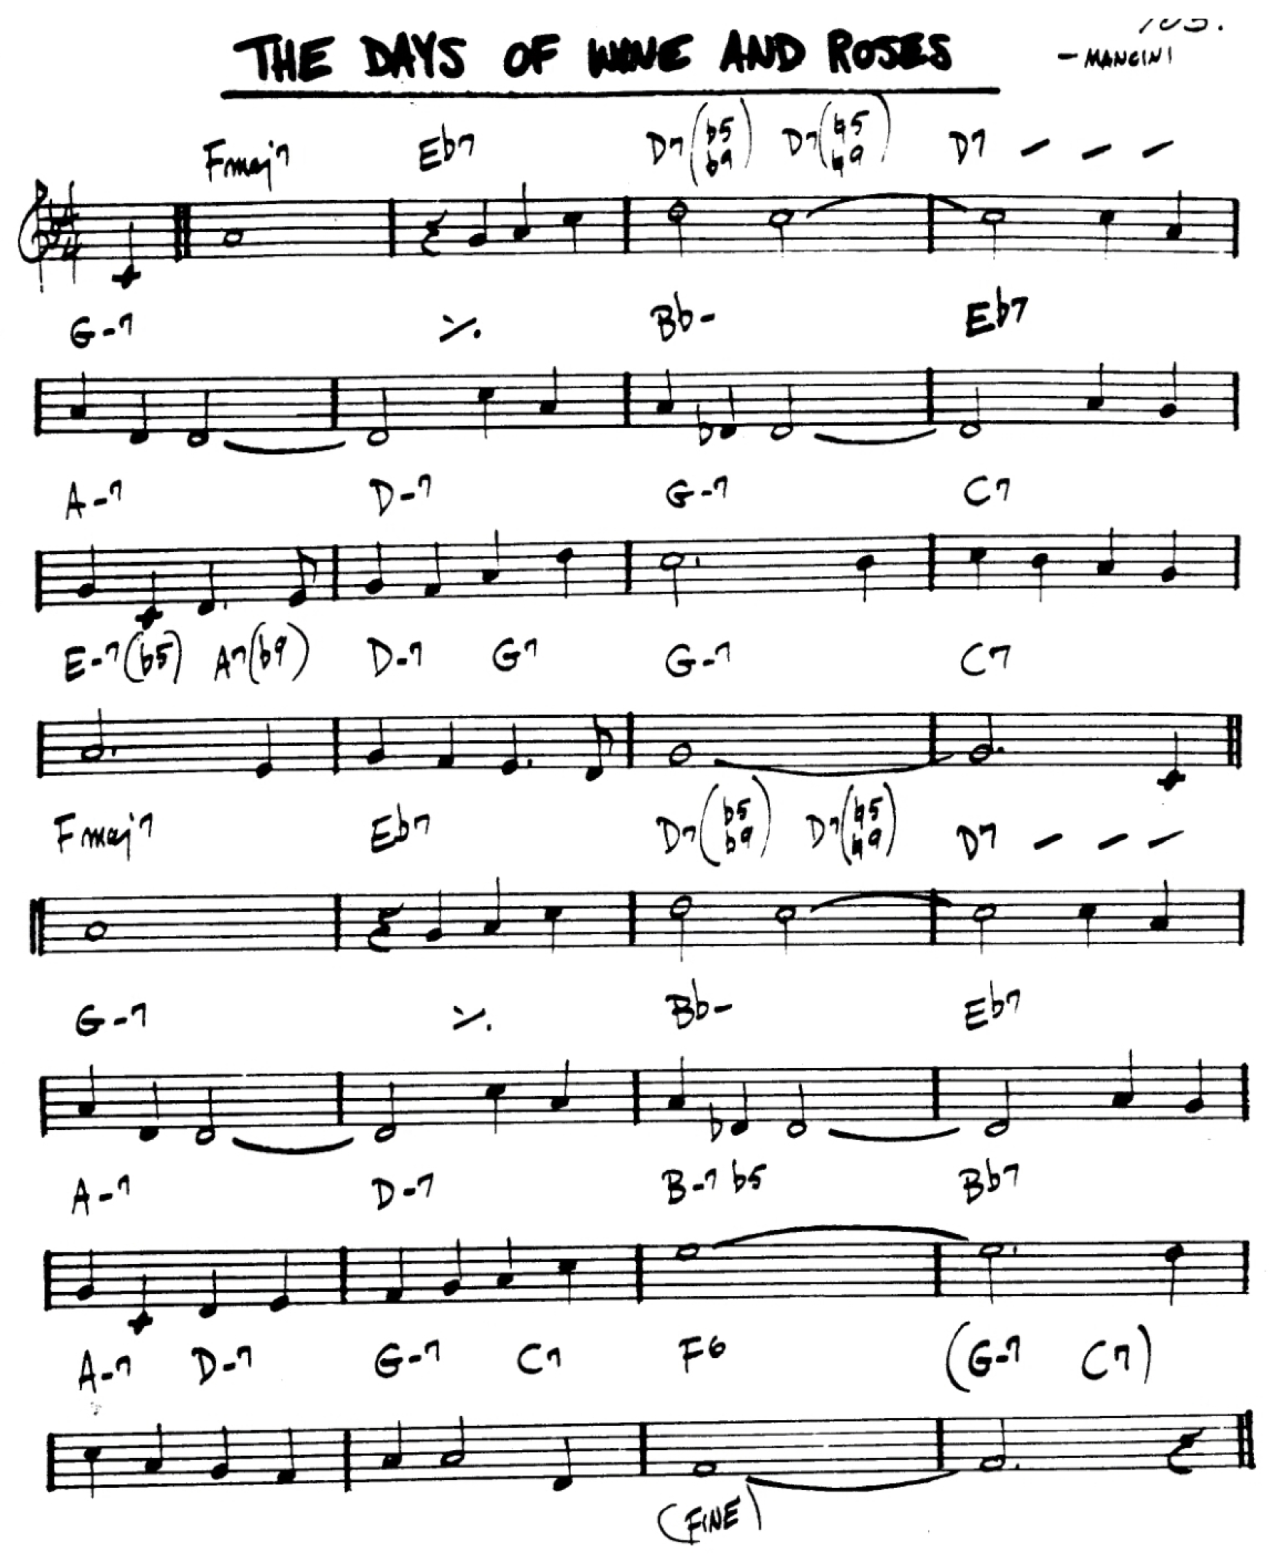 103.
THE DAYS OF WINE AND ROSES
- MANCINI
Fmaj7 Eb7 D7(b5 b9) D7(♮5 ♮9) D7 - - -
G-7 ٪ Bb- Eb7
A-7 D-7 G-7 C7
E-7(b5) A7(b9) D-7 G7 G-7 C7
Fmaj7 Eb7 D7(b5 b9) D7(♮5 ♮9) D7 - - -
G-7 ٪ Bb- Eb7
A-7 D-7 B-7 b5 Bb7
A-7 D-7 G-7 C7 F6 (G-7 C7)
(FINE)